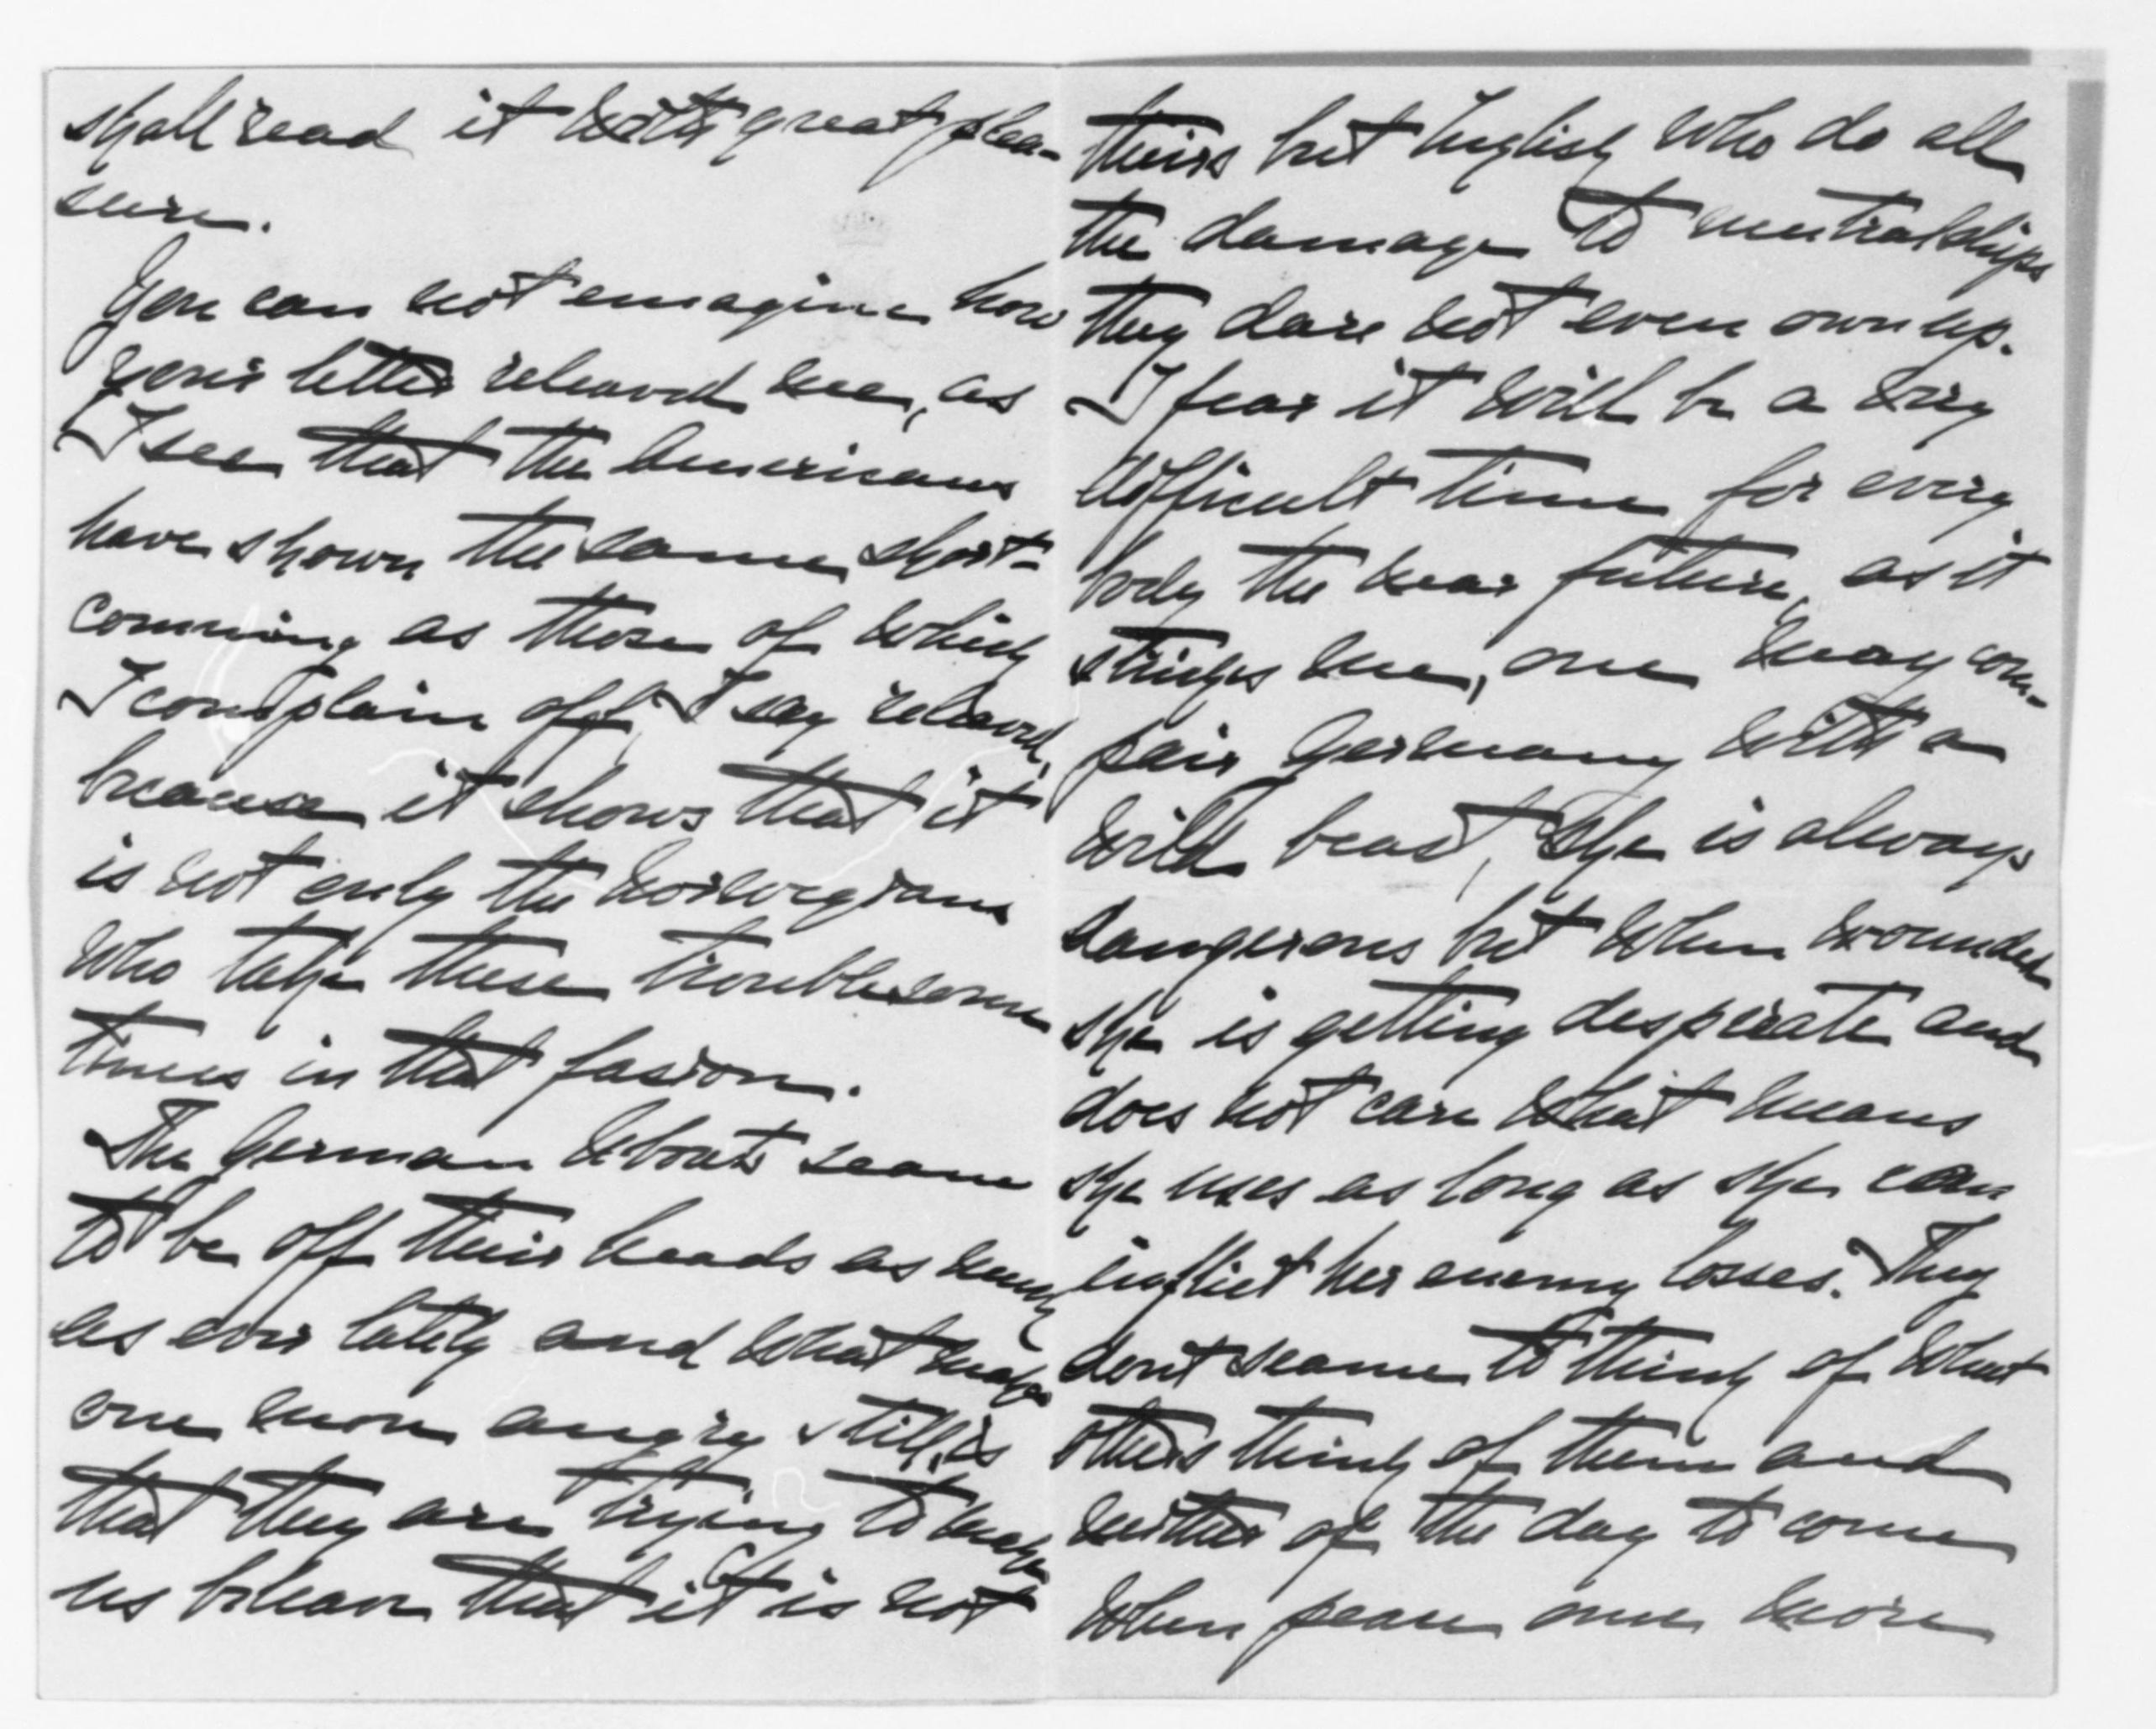 shall read it with great plea-
sure.
You can not emagine how
your letter releaved me, as
I see that the Americans
have shown the same short-
comming as those of which
I complain off, I say releaved,
because it shows that it
is not only the Norwegians
who take these troublesome
times in that fasion.
The German Uboats seame
to be off their heads as much
as ever lately and what makes
one more angry still, is
that they are trying to make
us beleave that it is not
theirs but English who do all
the damage to neutral ships
they dare not even own up.
I fear it will be a very
difficult time for every
body the near future, as it
strikes me, one may com-
pair Germany with a
wild beast, she is always
dangerous but when wounded
she is getting desperate and
does not care what means
she uses as long as she can
inflict her enemy losses. They
dont seame to think of what
others think of them and
neither of the day to come
when peace once more